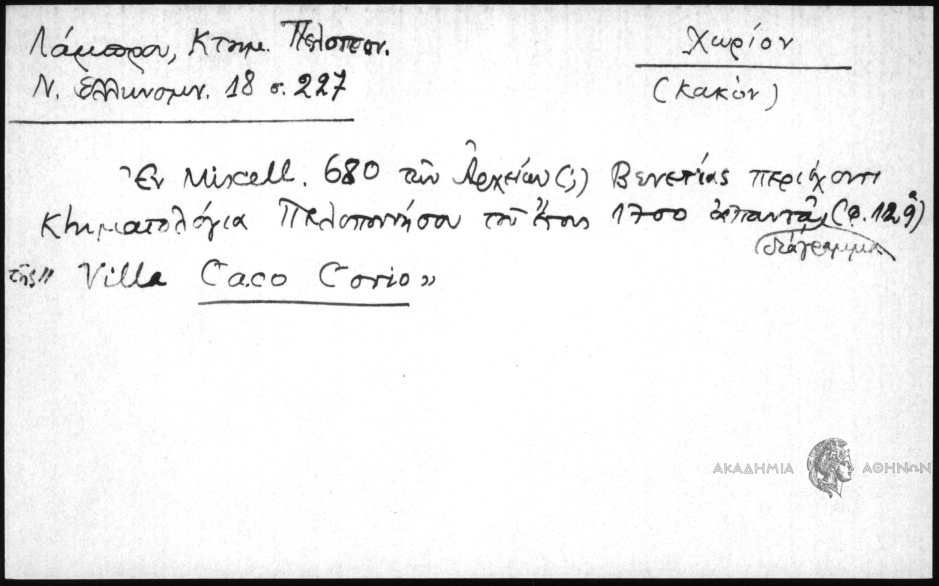 Λάμπρου, Κτημ. Πελοπον.
Ν. Ελληνομν. 18 σ. 227
Χωρίον
(κακὸν)
Ἐν Miscell. 680 τῶν Ἀρχείων (;) Βενετίας περιέχοντι
κτηματολόγια Πελοποννήσου τοῦ ἔτους 1700 ἀπαντᾷ (φ. 12
διάγραμμα
τῆς « Villa Caco Corio »
ΑΚΑΔΗΜΙΑ ΑΘΗΝΩΝ